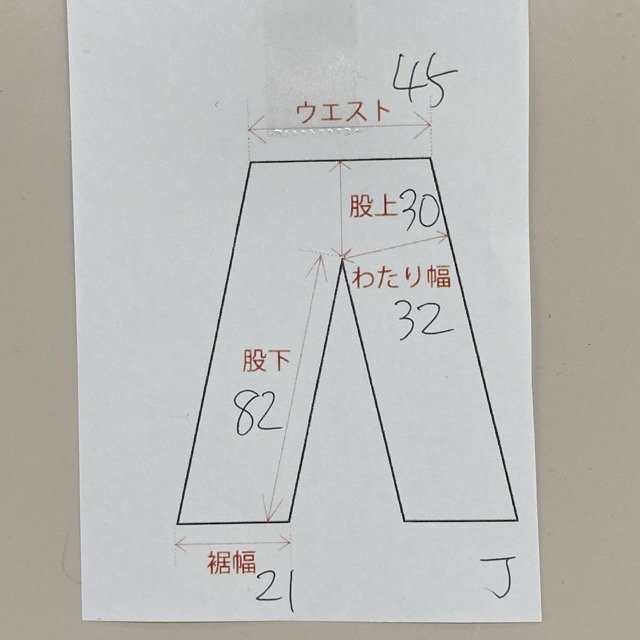 45
ウエスト
股上30
わたり幅
32
股下
82
裾幅
21
J